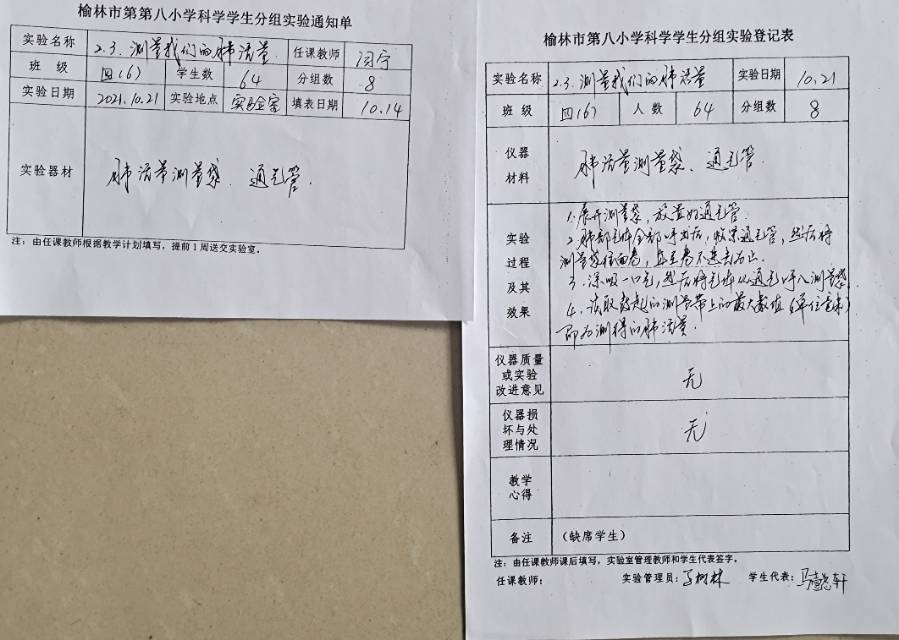 榆林市第第八小学科学学生分组实验通知单
实验名称 2.3.测量我们的肺活量 任课教师
班 级 四(6) 学生数 64 分组数 8
实验日期 2021.10.21 实验地点 实验室 填表日期 10.14
实验器材 肺活量测量袋、通气管.
注:由任课教师根据教学计划填写,提前1周送交实验室。
榆林市第八小学科学学生分组实验登记表
实验名称 2.3.测量我们的肺活量 实验日期 10.21
班 级 四(6) 人 数 64 分组数 8
仪器
材料
肺活量测量袋、通气管.
实验
过程
及其
效果
1.展开测量袋,放置好通气管.
2.肺部气体全部呼出后,收紧通气管,然后将
测量袋往回卷,直至卷不进去为止.
3.深吸一口气,然后将气体从通气呼入测量袋
4.读取鼓起的测量带上的最大数值(单位毫升)
即为测得的肺活量.
仪器质量
或实验
改进意见
无
仪器损
坏与处
理情况
无
教学
心得
备注 (缺席学生)
注:由任课教师课后填写,实验室管理教师和学生代表签字。
任课教师: 实验管理员: 树林 学生代表: 马 轩